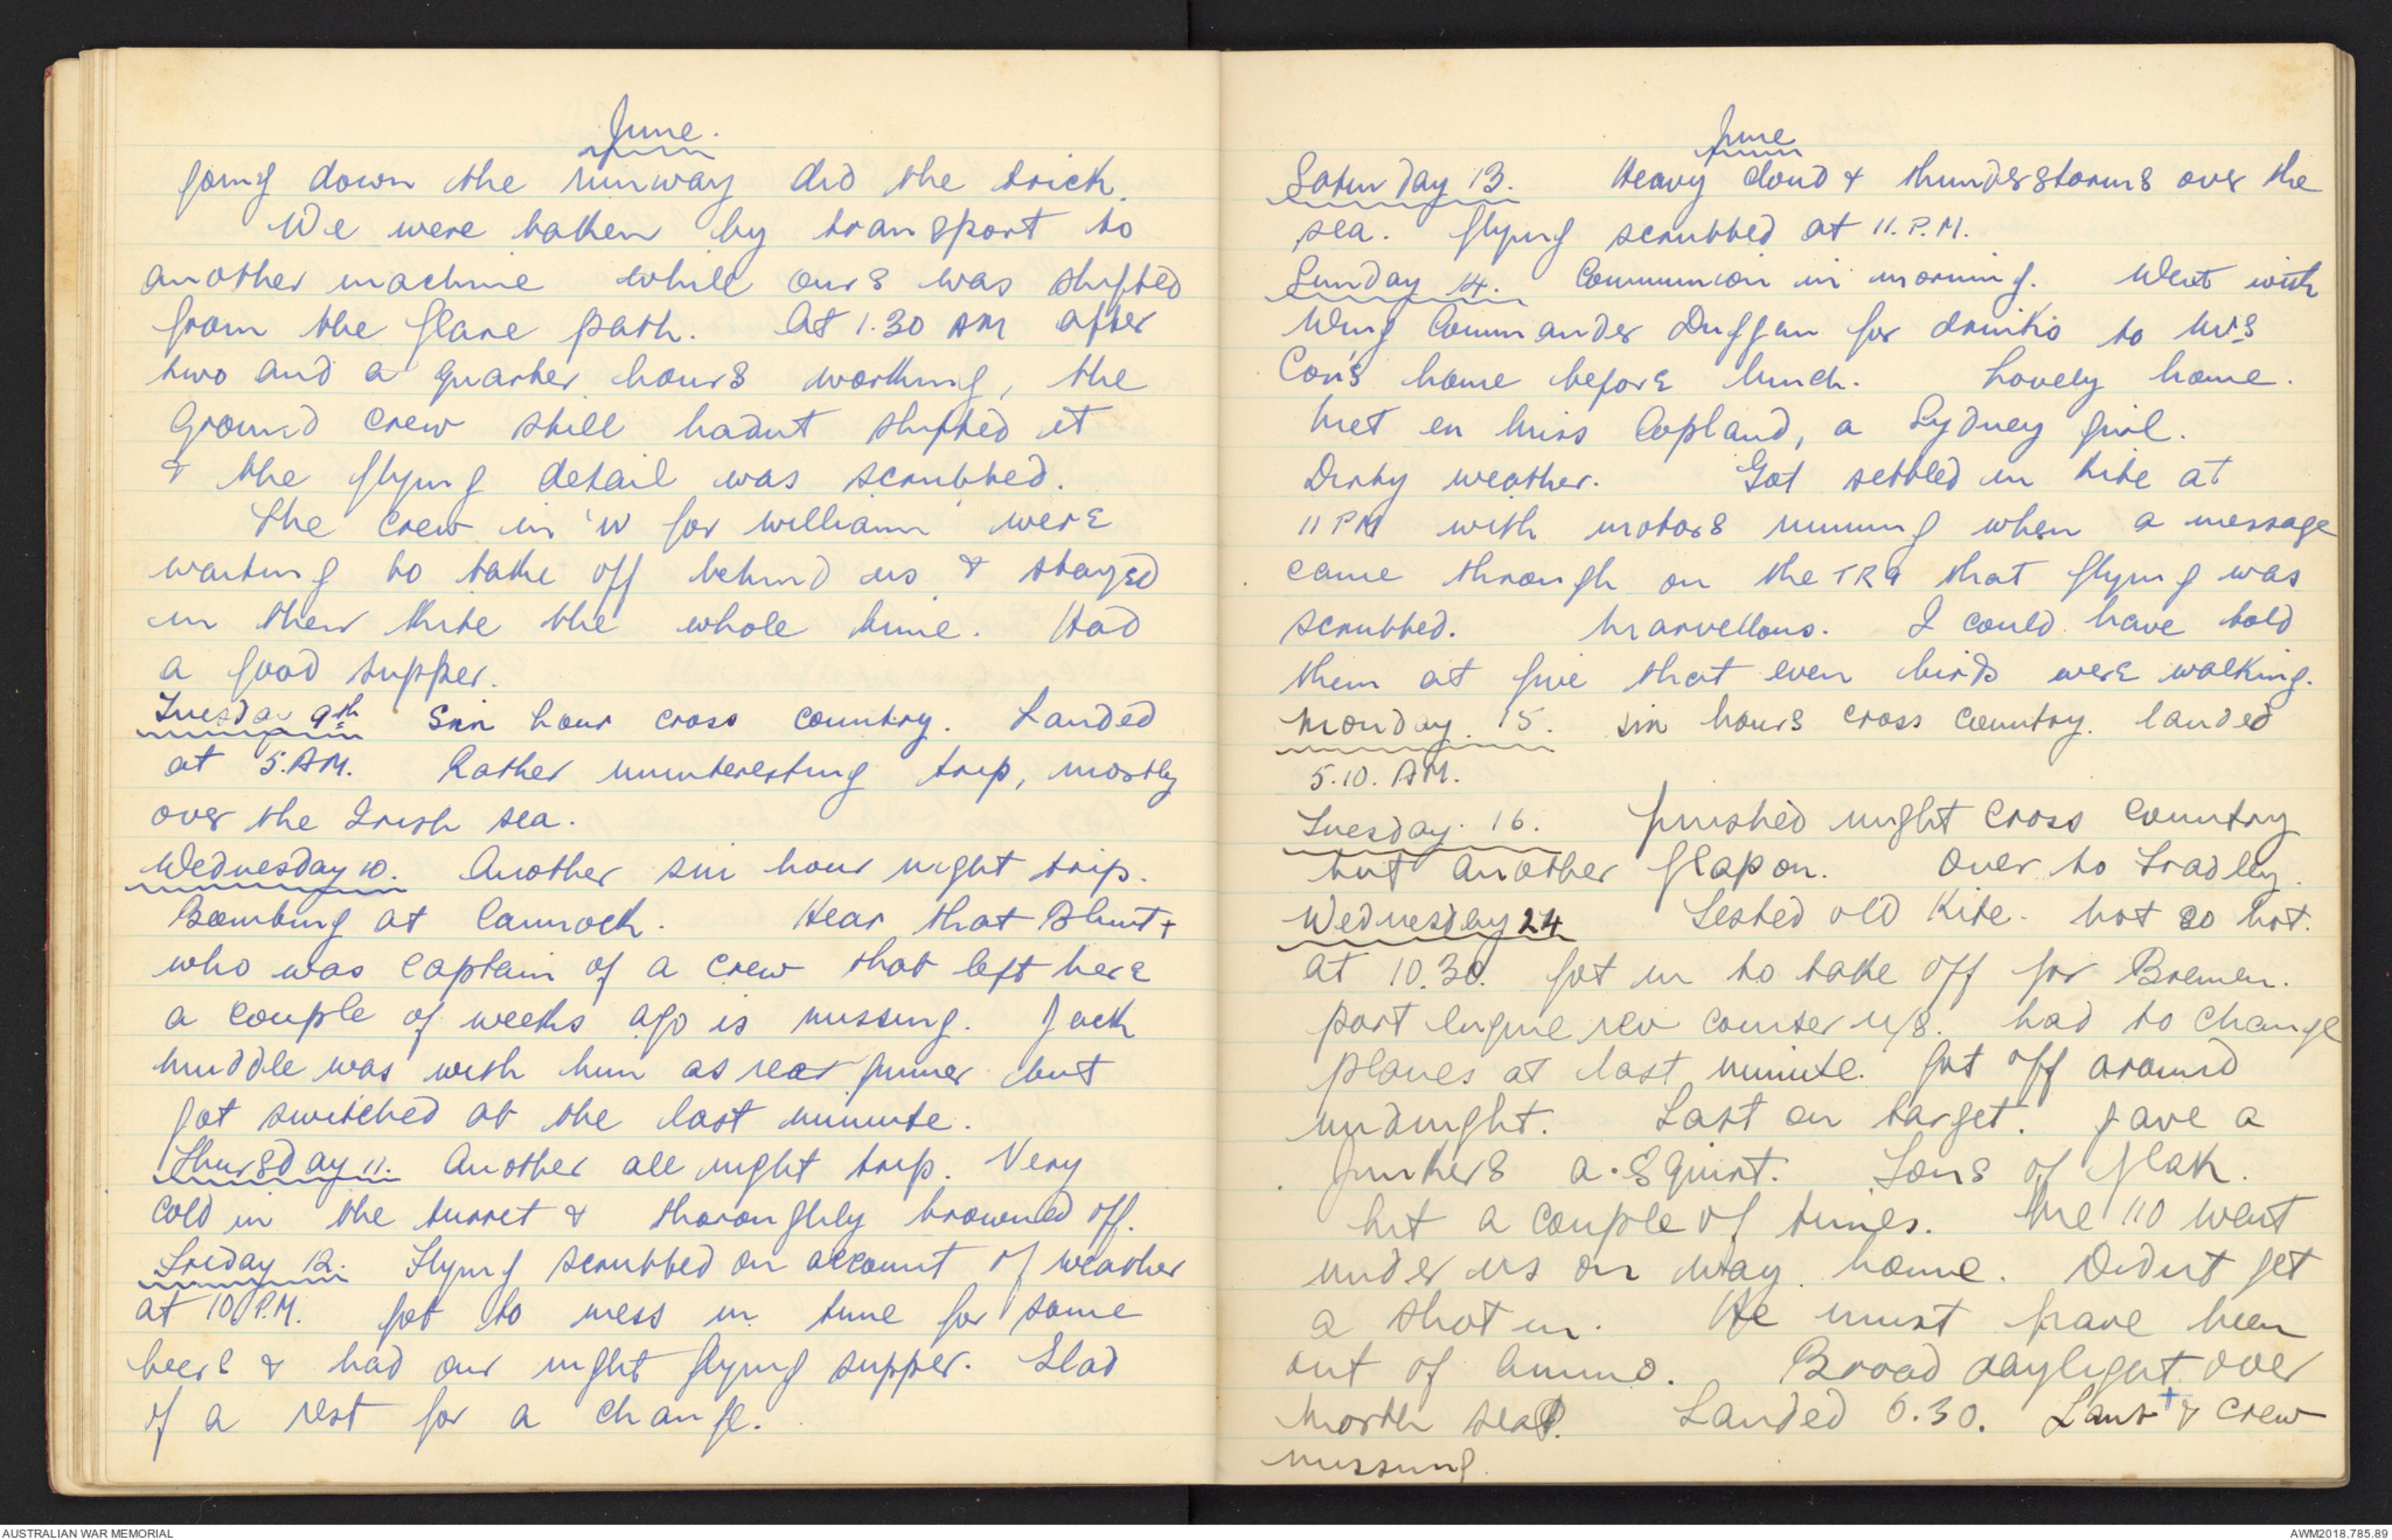 June.
going down the runway did the trick.
We were taken by transport to
another machine while ours was shifted
from the flare path. At 1.30 AM after
two and a quarter hours working, the
ground crew still hadnt shifted it
& the flying detail was scrubbed.
The crew in 'W for william' were
waiting to take off behind us & stayed
in their kite the whole time. Had
a good supper.
Tuesday 9th Six hour cross country. Landed
at 5.AM. Rather uninteresting trip, mostly
over the Irish sea.
Wednesday 10. Another six hour night trip.
Bombing at Cannock. Hear that Blunt +
who was captain of a crew that left here
a couple of weeks ago is missing. Jack
Muddle was with him as rear gunner but
got switched at the last minute.
Thursday 11. Another all night trip. Very
cold in the turret & thoroughly browned off.
Friday 12. Flying scrubbed on account of weather
at 10 P.M. Got to mess in time for some
beers & had our night flying supper. Glad
of a rest for a change.
June
Saturday 13. Heavy cloud & thunderstorms over the
sea. Flying scrubbed at 11. P.M.
Sunday 14. Communion in morning. Went with
Wing Commander Duggan for drinks to Mrs
Con's home before lunch. Lovely home.
Met en Miss Copland, a Sydney girl.
Dirty weather. Got settled in kite at
11 PM with motors running when a message
came through on the TR9 that flying was
scrubbed. Marvellous. I could have told
them at five that even birds were walking.
Monday 15. Six hours cross country. landed
5.10. AM.
Tuesday. 16. finished night cross country
but another flap on. Over to Fradley.
Wednesday 24 Tested old kite. Not so hot.
at 10.30. got in to take off for Bremen.
port engine rev counter u/s. had to change
planes at last minute. Got off around
midnight. Last on target. gave a
Junkers a squirt. Tons of flak.
hit a couple of times. Me 110 went
under us on way home. Didnt get
a shot in. He must have been
out of ammo. Broad daylight over
North sea. Landed 6.30. + & crew
missing.
AUSTRALIAN WAR MEMORIAL
AWM2018.785.89